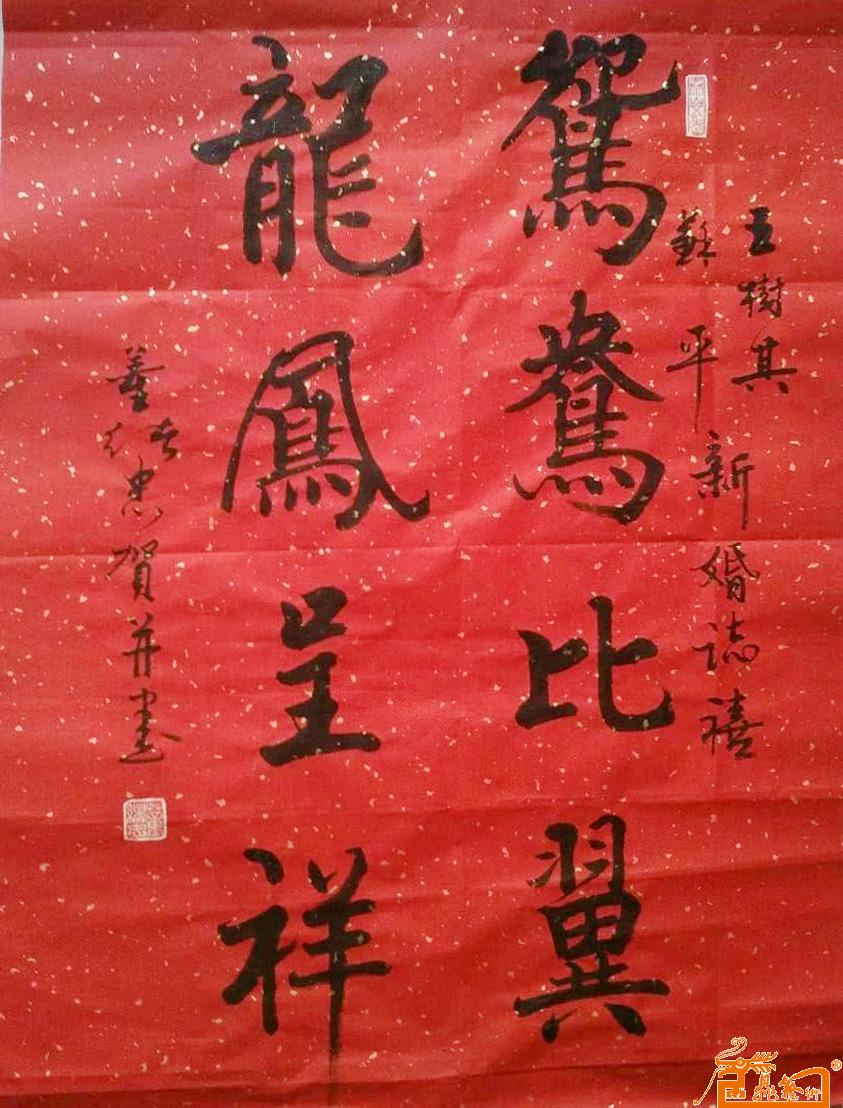 王樹其
蘇平
新婚誌禧
鴛鴦比翼
龍鳳呈祥
董忠賀并書